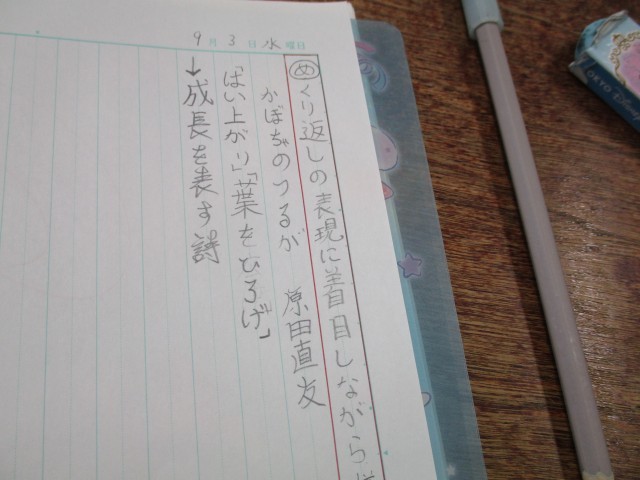 9月3日水曜日
めくり返しの表現に着目しながら
かぼちゃのつるが　原田直友
「はい上がり」「葉をひろげ」
→成長を表す詩